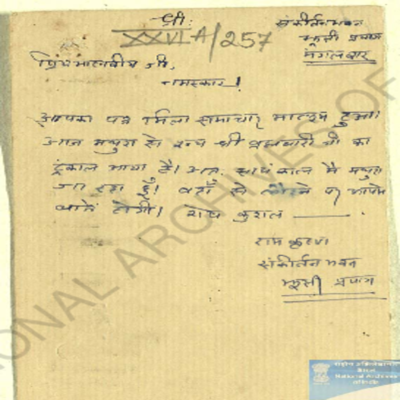 श्रीः
XXVI-A/257
संकीर्तन भवन
झूसी प्रयाग
मंगलवार
प्रिय मालवीय जी,
नमस्कार!
आपका पत्र मिला समाचार मालूम हुआ।
आज मथुरा से श्री ब्रह्मचारी जी का
ट्रंकाल आया है। अतः सायंकाल मैं मथुरा
जा रहा हूँ। वहाँ से लौटने पर आपसे
बातें होंगी। शेष कुशल
राम कृष्ण
संकीर्तन भवन
झूसी प्रयाग
NATIONAL ARCHIVES OF
राष्ट्रीय अभिलेखागार
National Archives